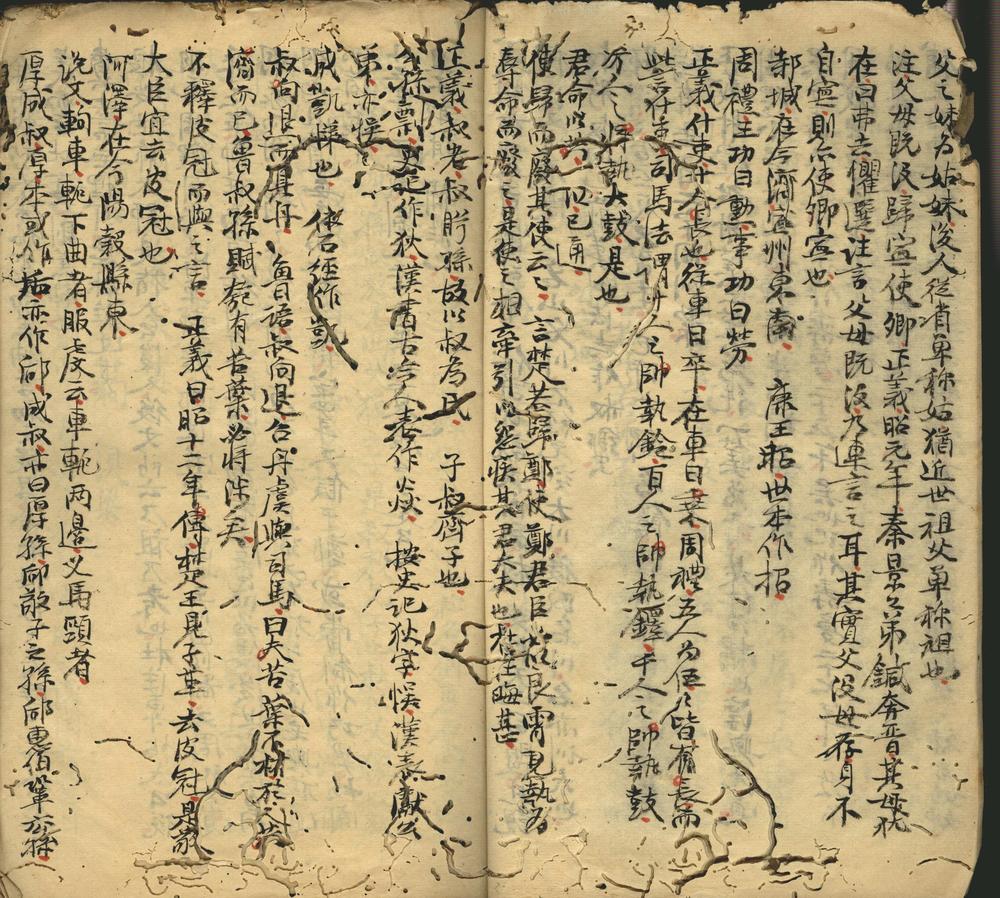 父之妹為姑妹後人從省單称姑猶近世祖父單称祖也
注父母既没歸寧使卿 正義昭元年秦景公弟鍼奔晋其母
在曰弗去懼選注言父母既没者連言之耳其實父没母存身不
自寧則亦使卿寧也
邿城在今濟寧州東南 康王昭世本作招
周禮王功曰勳事功曰勞
正義什吏十人長也徒車曰卒在車曰乗周禮五人為伍伍皆有長而
此言什吏司馬法謂十人之帥執鈴百人之帥執鐸千人之帥執鼓
万人之将執大鼓是也
君命以共 而已 通
使歸而廢其使云云 言楚若歸鄭使鄭君臣 良霄見執為
辱命而廢之是使之相牽引以怨疾其君大夫也杜注晦甚
正義叔老叔肸孫故以叔為氏 子叔齊子也
剽史記作狄漢書古今人表作焱 按史記狄字悞漢表獻公
弟亦悞
成凱悌也 作或
叔向退而具舟 魯語叔向退召舟虞與司馬曰夫苦葉不材於人共
濟而已魯叔孫賦匏有苦葉必将涉矣
不釋皮冠而與之言 正義曰昭十二年傳楚王見子革去皮冠是敬
大臣宜去皮冠也
阿澤在今陽穀縣東
説文軥車軛下曲者服虔云車軛两邉义馬頸者
厚成叔厚本或作郈亦作郈成叔亦曰厚孫郈敬子之孫郈惠伯鞏